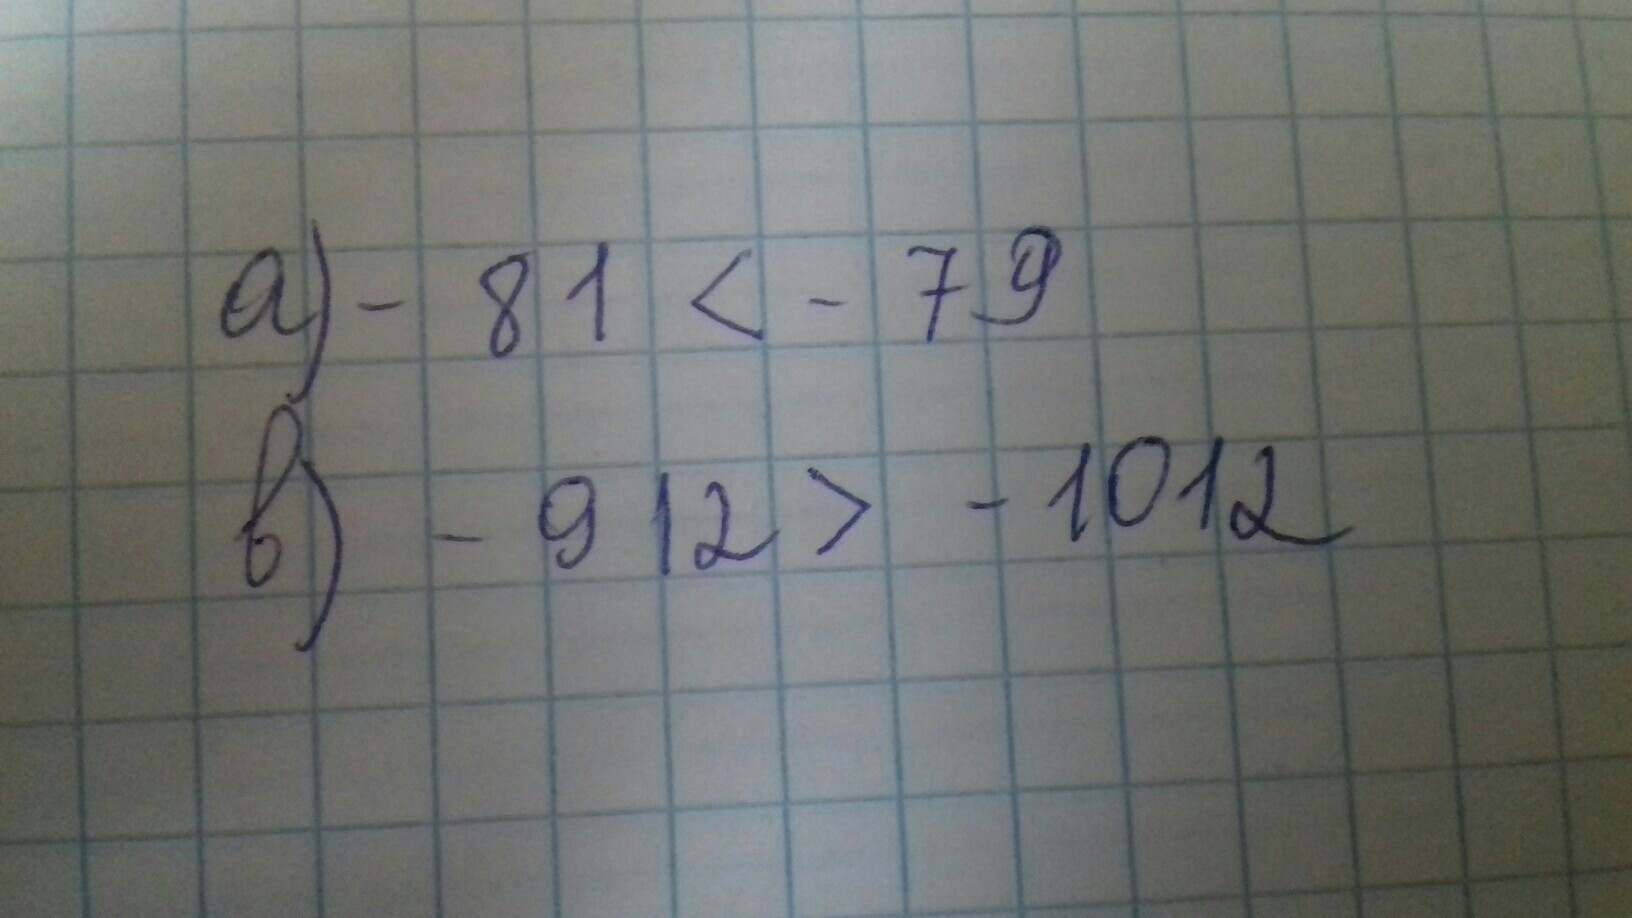 а) - 81 < - 79
в) - 912 > - 1012